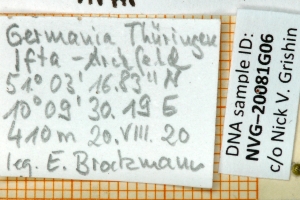 Germania Thüringen
Ifta -
51° 03' 16.83" N
10° 09' 30.19 E
410 m 20. VIII. 20
leg. E. Brockmann
DNA sample ID:
NVG–20081G06
c/o Nick V. Grishin